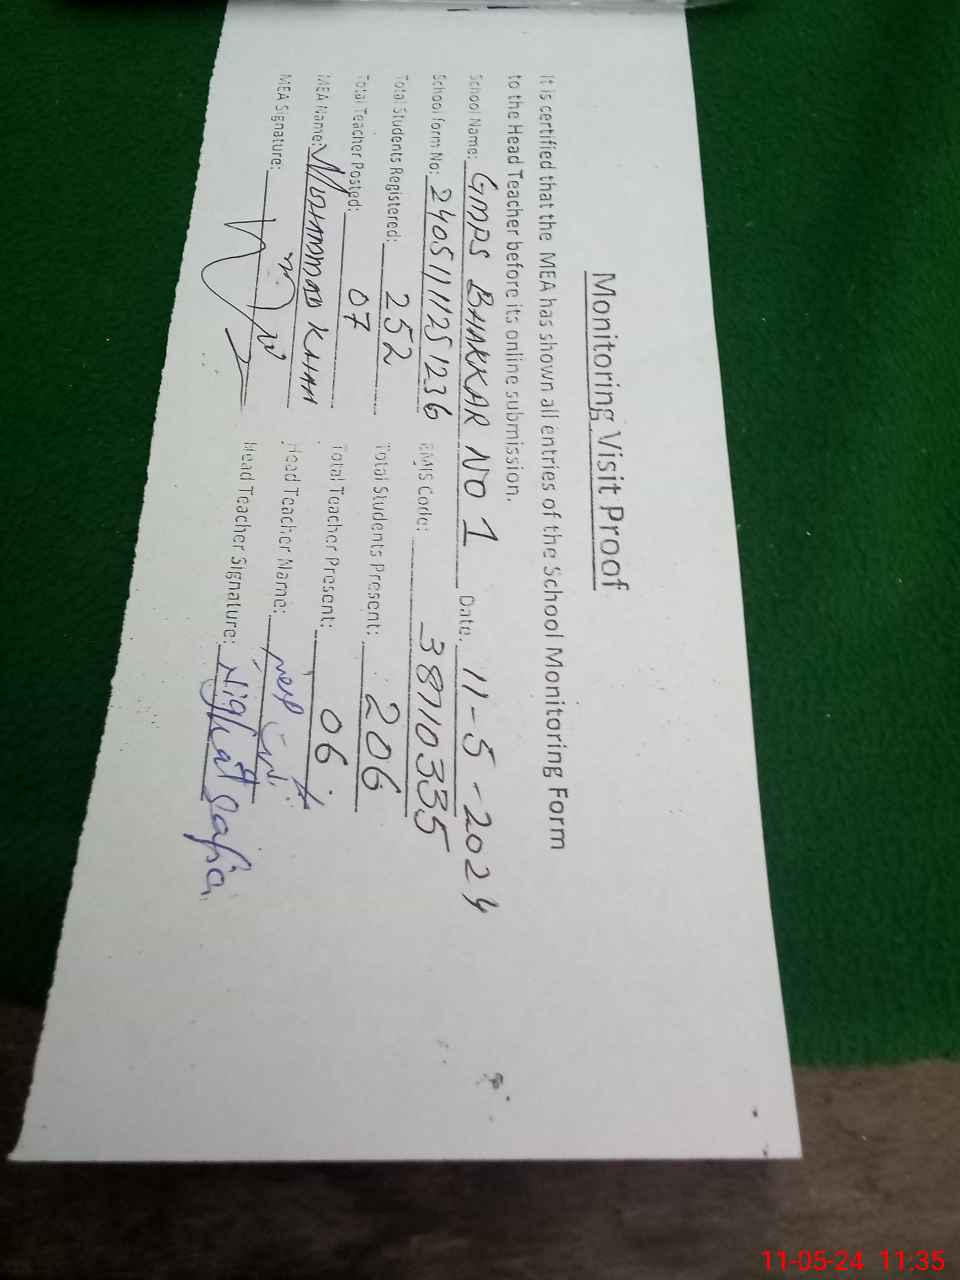 Monitoring Visit Proof
It is certified that the MEA has shown all entries of the School Monitoring Form
to the Head Teacher before its online submission.
School Name: GMPS BHAKKAR NO 1 Date. 11-5-2024
School form No: 24051111251236 EMIS Code: 38710335
Total Students Registered: 252 Total Students Present: 206
Total Teacher Posted: 07 Total Teacher Present: 06
MEA Name: MUHAMMAD KHAN Head Teacher Name:
MEA Signature: Head Teacher Signature: Nighat Safia
11-05-24 11:35